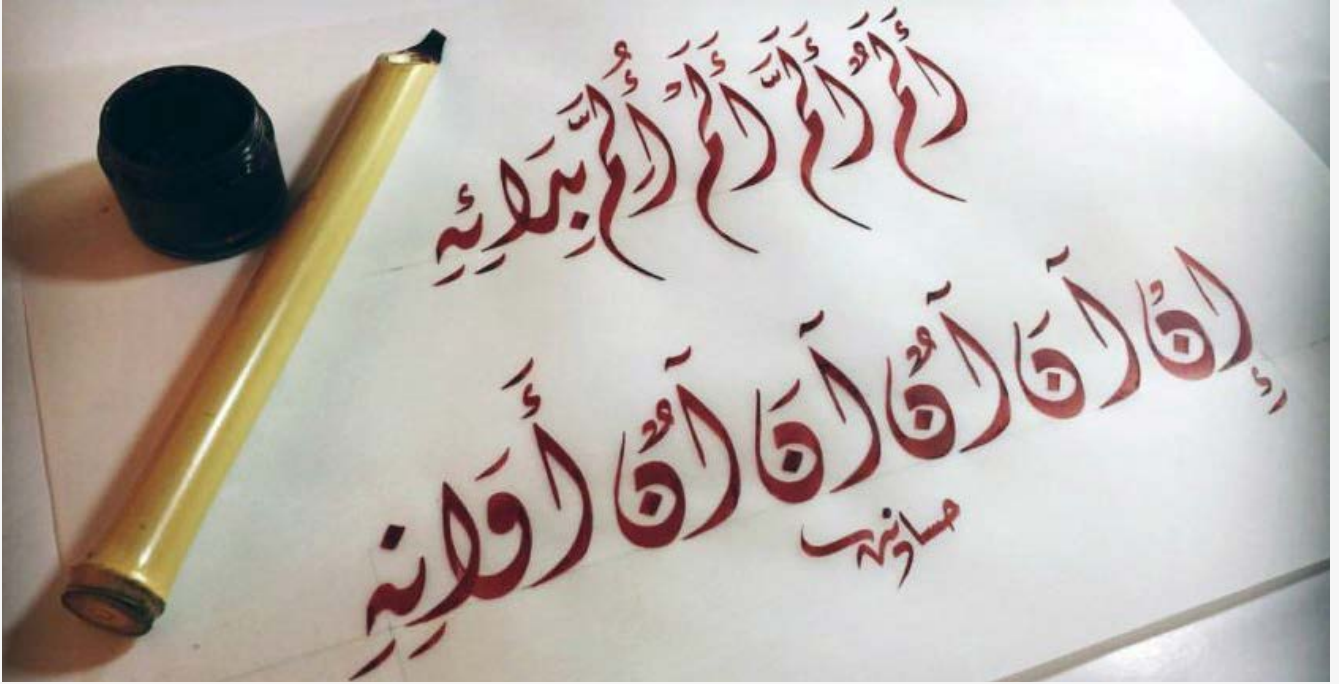 أَلَمٌ أَلَمَّ أَلَمْ أُلِمَّ بِدَائِهِ
إِنْ آنَ آنٌ آنَ آنٌ أَوَانِهِ